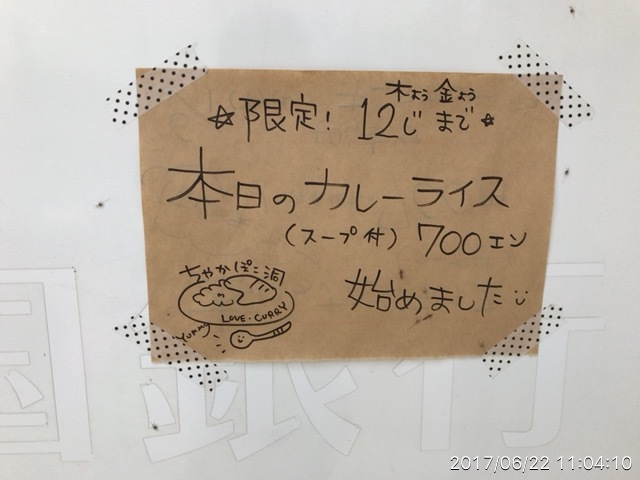 木よう 金よう
☆限定! 12じまで☆
本日のカレーライス
(スープ付) 700エン
始めました
ちゃかぽこ洞
LOVE・CURRY
YUMMY
国銀行
2017/06/22 11:04:10